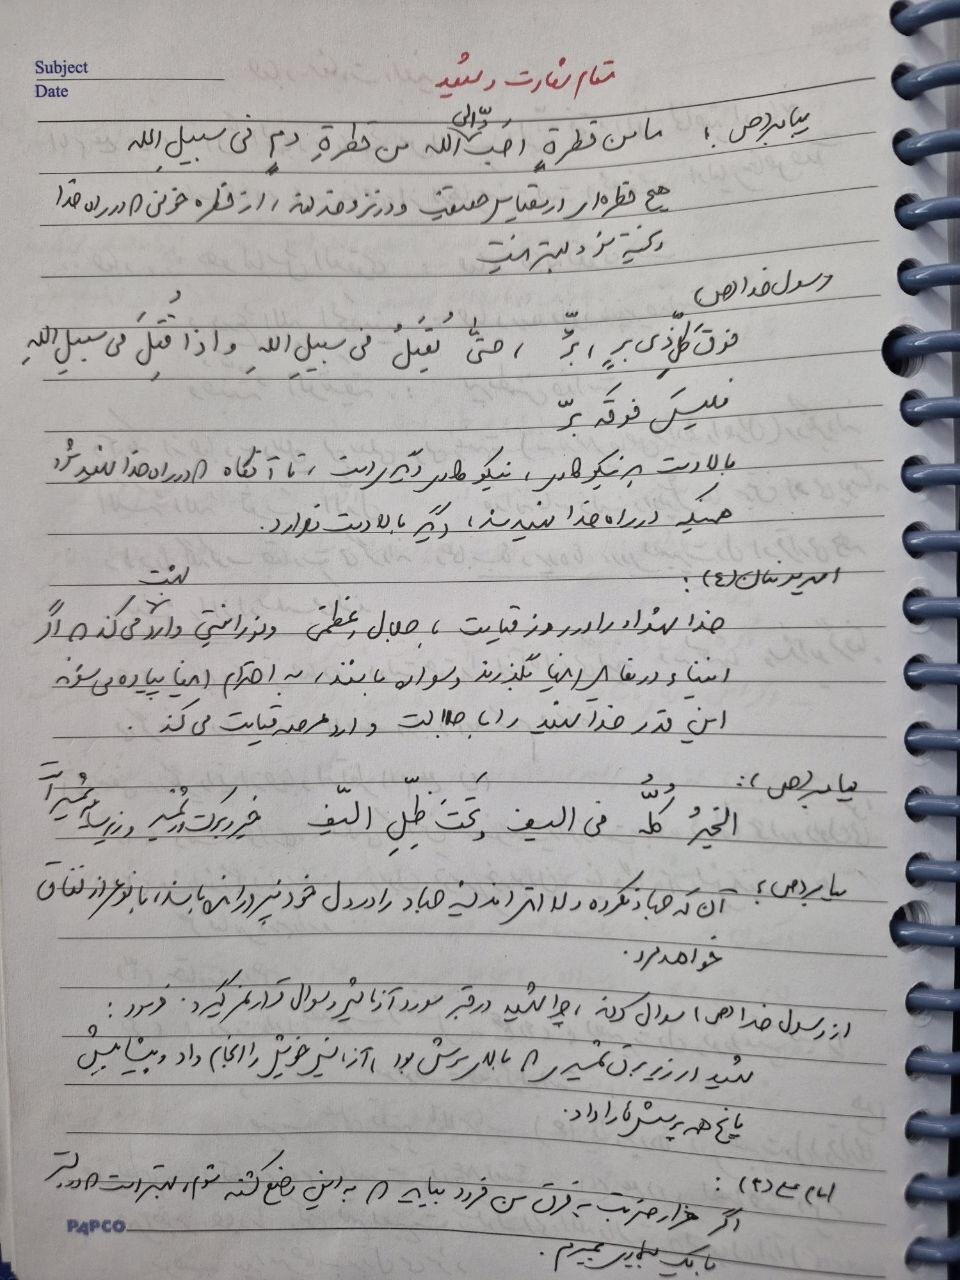 Subject
Date
مقام شهادت و شهید
پیامبر(ص):
ما من قطرةٍ احَبّ الی الله من قطرةِ دمٍ فی سبیلِ الله
هیچ قطره‌ای در مقیاس حقیقت و در نزد خداوند، از قطره خونی که در راه خدا
ریخته شود بهتر نیست
رسول خدا(ص)
فوقَ کلِّ ذی برٍ، برٌّ، حتّیٰ یُقتَلُ فی سبیلِ اللهِ و اذا قُتِلَ فی سبیلِ اللهِ
فلیسَ فوقَه برٌّ
بالادست هر نیکوکاری، نیکوکاری دیگری است، تا آنگاه که در راه خدا شهید شود
همینکه در راه خدا شهید شد، دیگر بالادست ندارد.
امیرمومنان(ع):
خدا شهداء را در روز قیامت با جلال و عظمتی و نورانیتی وارد بهشت می‌کند که اگر
انبیاء در مقابل آنها بگذرند و سواره باشند، به احترام آنها پیاده می‌شوند
این قدر خدا شهید را با جلالت وارد عرصه قیامت می‌کند.
پیامبر(ص):
الخیرُ کُلُّه فی السیف و تَحتَ ظِلِّ السّیف خیر و برکت در شمشیر و زیر سایه شمشیر است
پیامبر(ص):
آن که جهاد نکرده و لااقل اندیشه جهاد را در دل خود نپرورانده باشد، با نوعی از نفاق
خواهد مرد.
از رسول خدا(ص) سوال کردند، چرا شهید در قبر مورد آزمایش و سوال قرار نمی‌گیرد. فرمود:
شهید در زیر برق شمشیری که بالای سرش بود، آزمایش خویش را انجام داد و پیشاپیش
پاسخ همه پرسش‌ها را داد.
امام علی(ع):
اگر هزار ضربت به فرق من فرود بیاید که به این وضع کشته شوم، بهتر است که در بستر
با یک بیماری بمیرم.
PAPCO